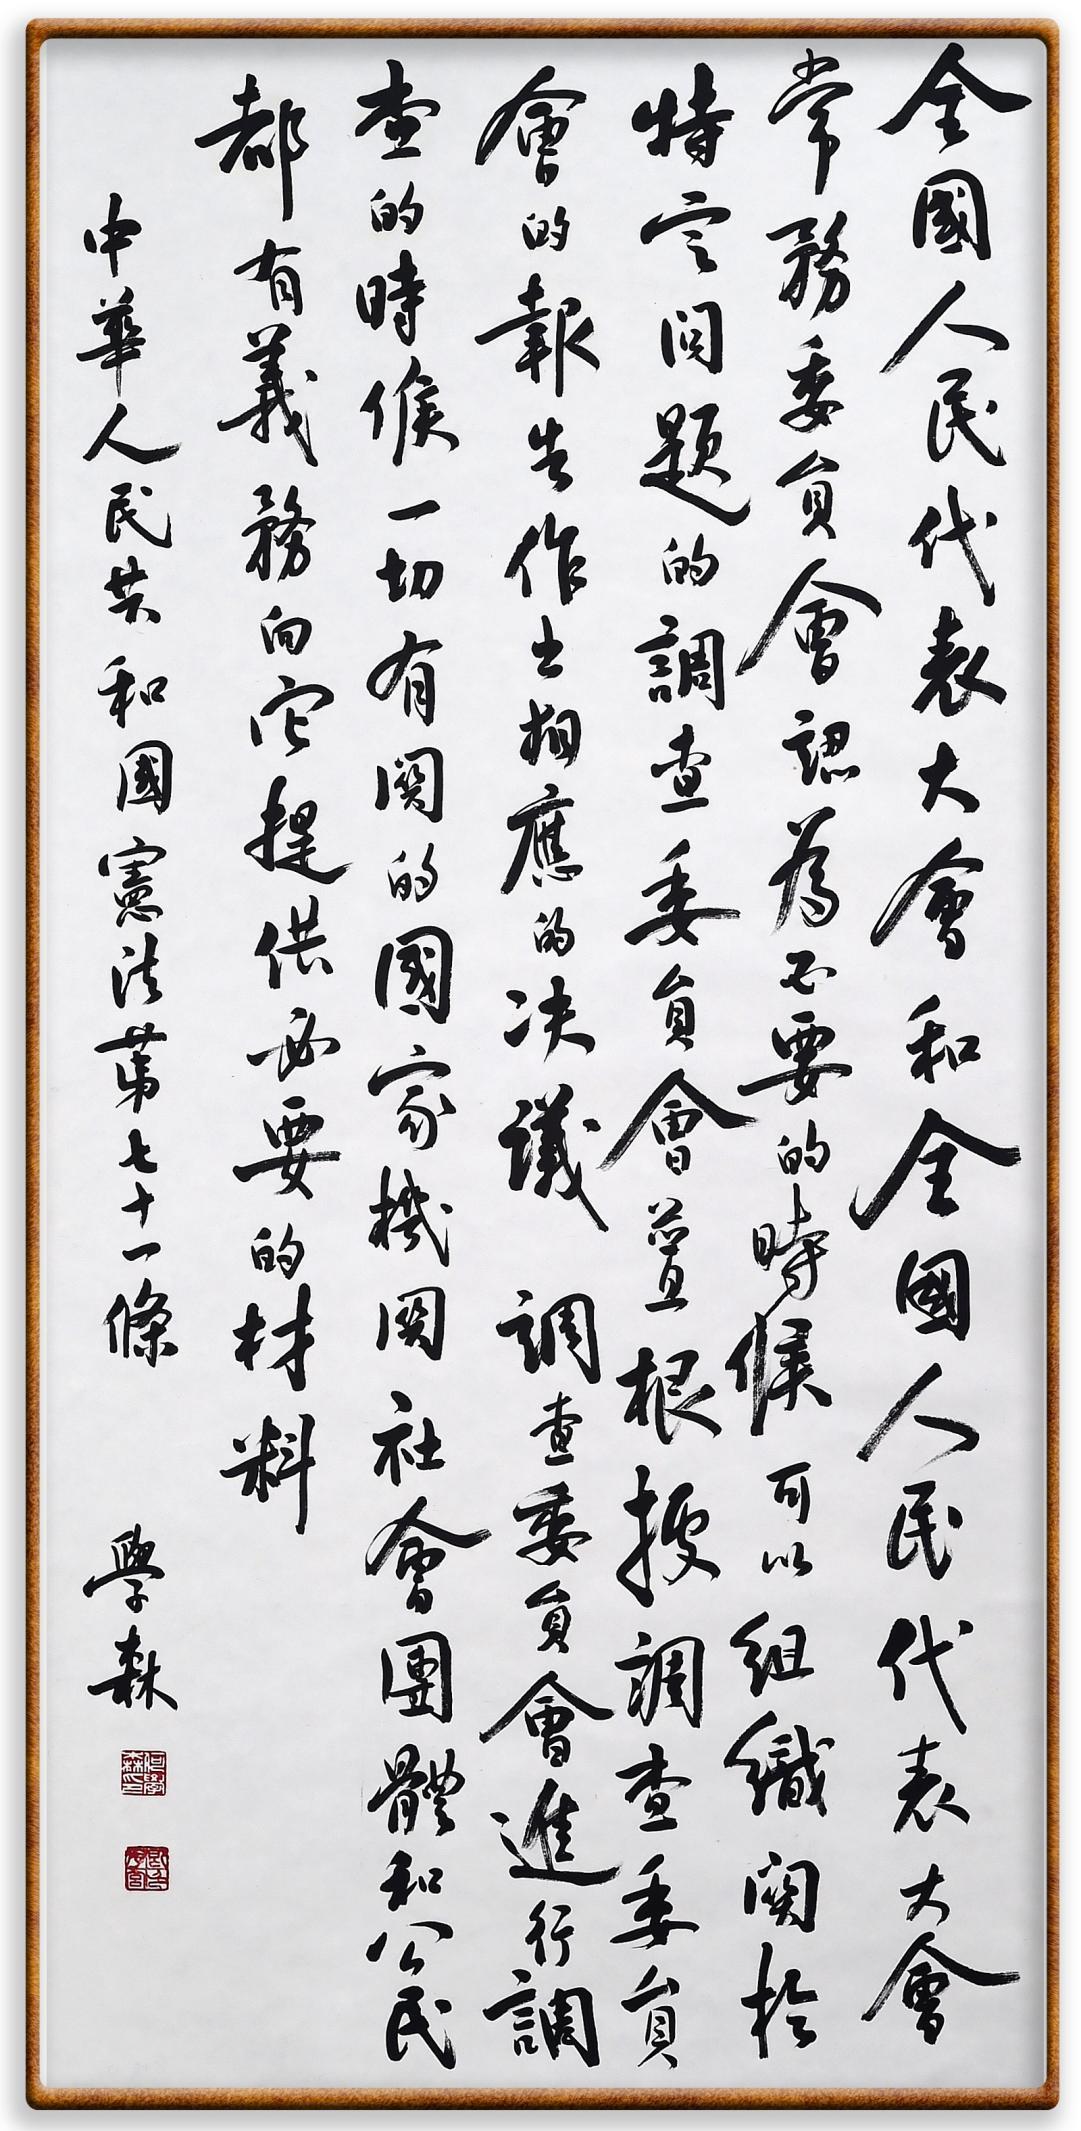 全國人民代表大會和全國人民代表大會
常務委員會認為必要的時候可以組織關於
特定問題的調查委員會並根據調查委員
會的報告作出相應的決議調查委員會進行調
查的時候一切有關的國家機關社會團體和公民
都有義務向它提供必要的材料
中華人民共和國憲法第七十一條 學森
何學森印